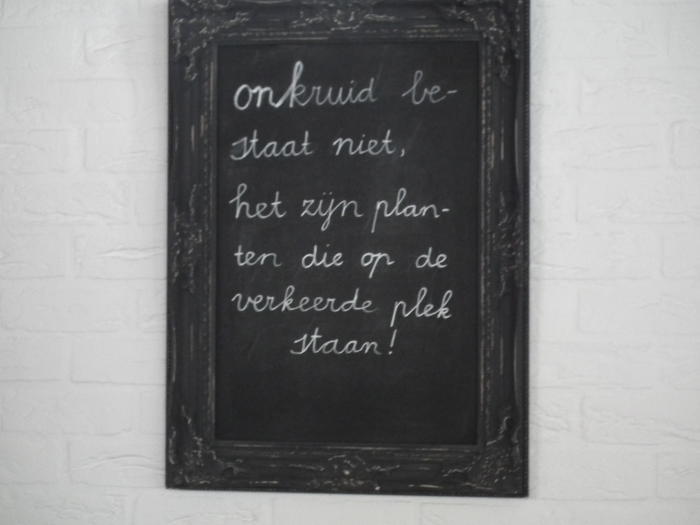 onkruid be-
staat niet,
het zijn plan-
ten die op de
verkeerde plek
staan!